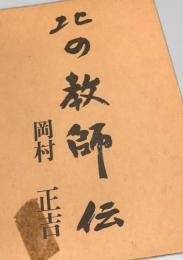 北の教師伝
岡村 正吉